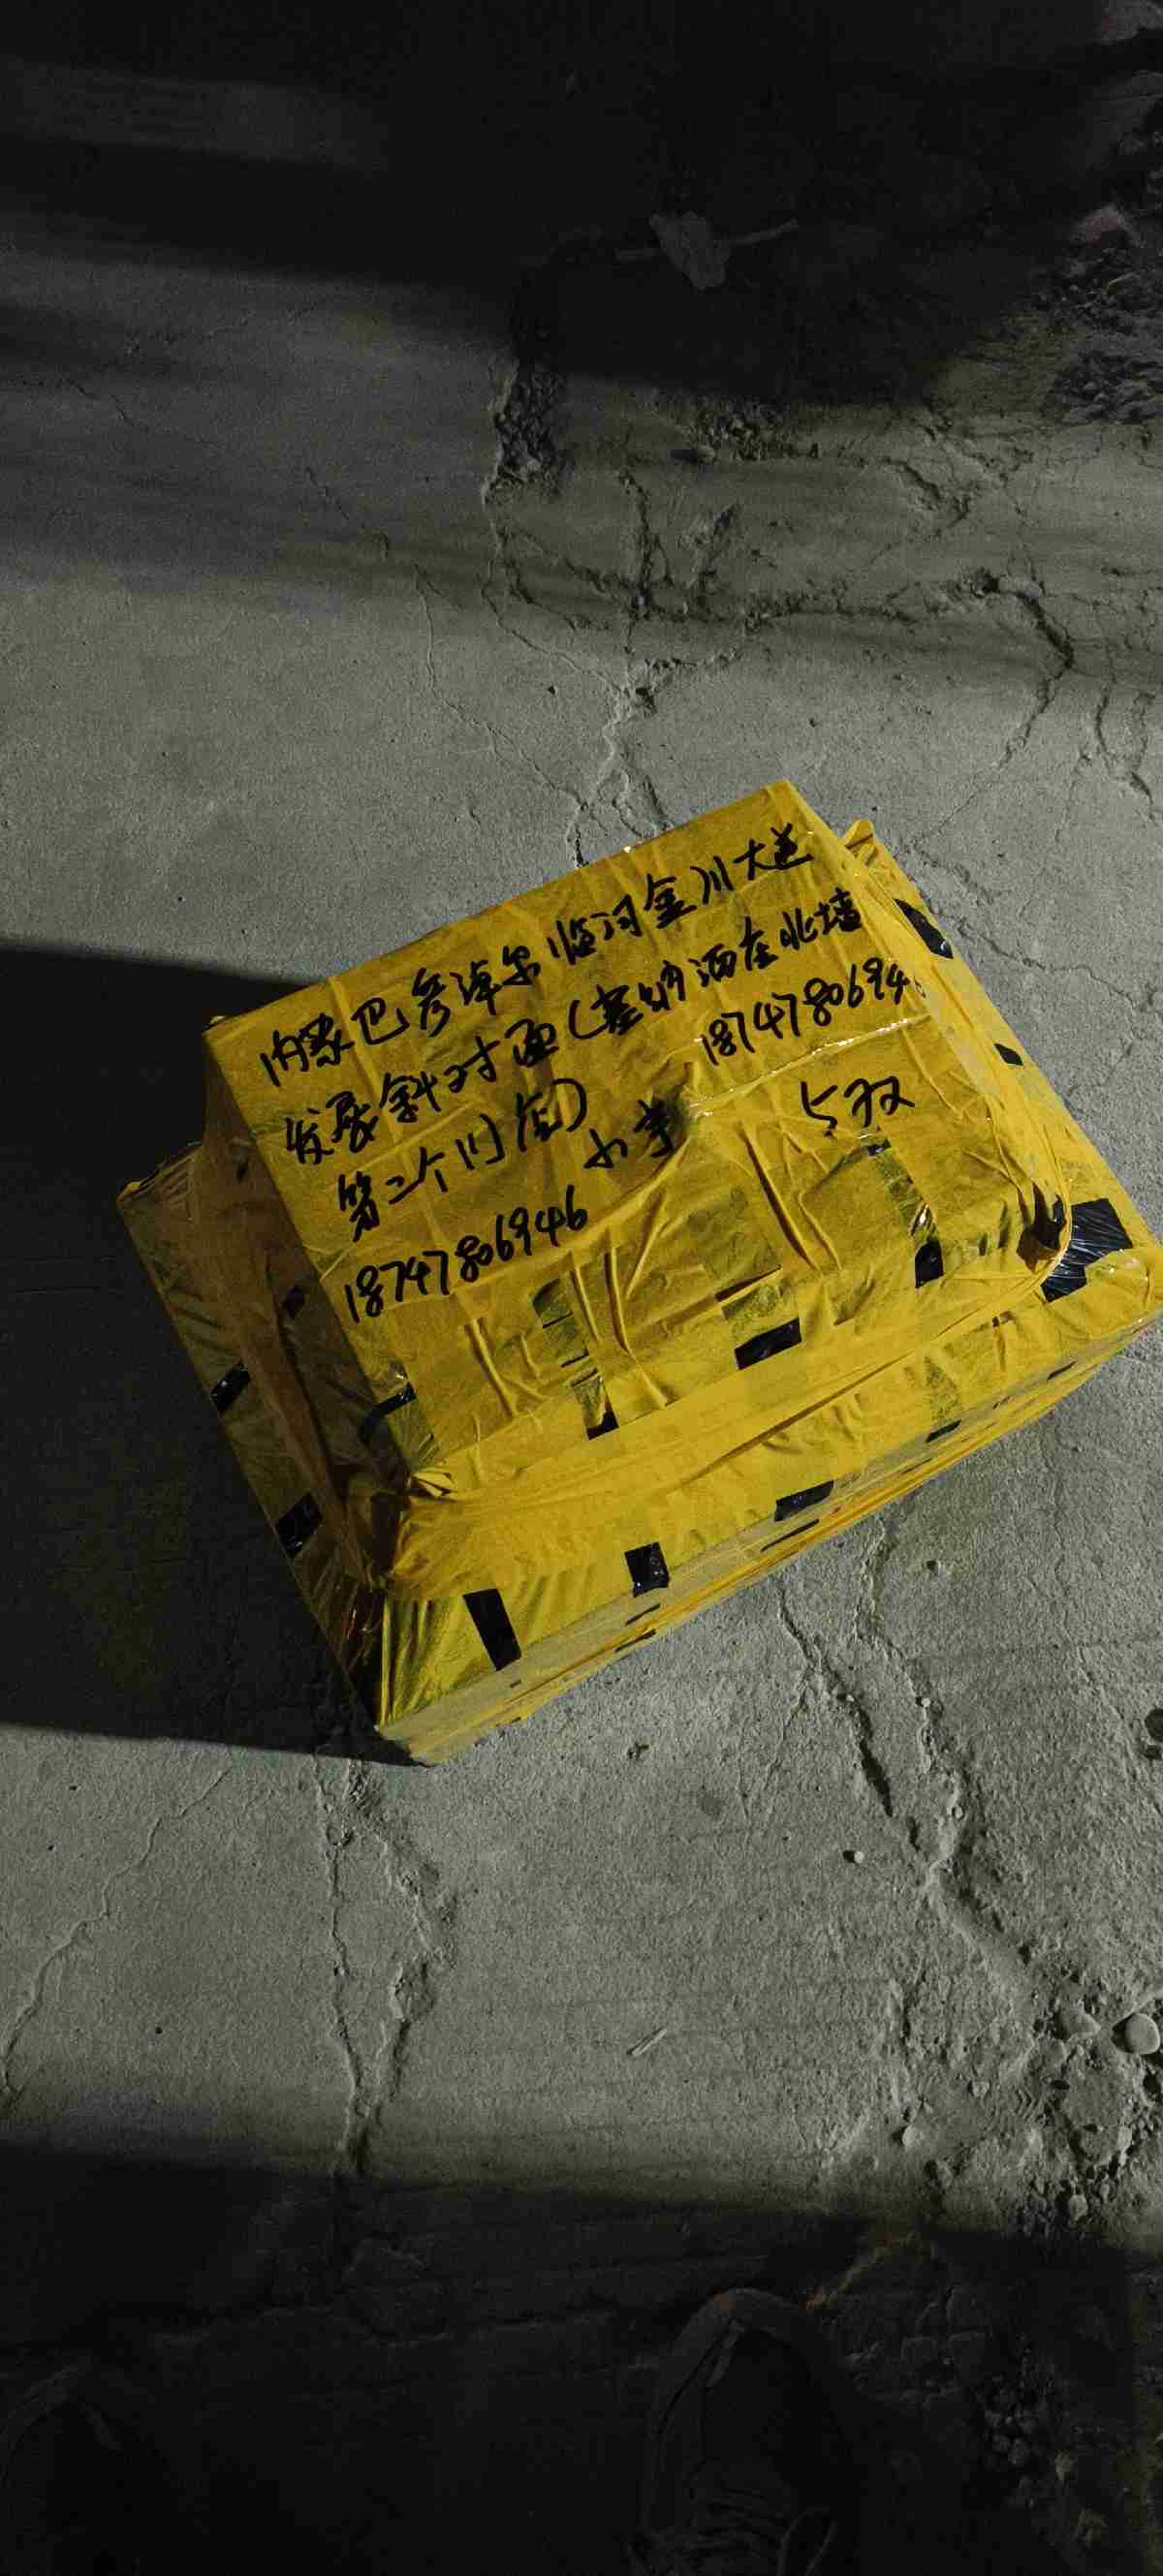 内蒙巴彦淖尔临河金川大道
发展斜对面(塞纳酒店北墙
第二个门店)
小李 18747806946
18747806946
5双